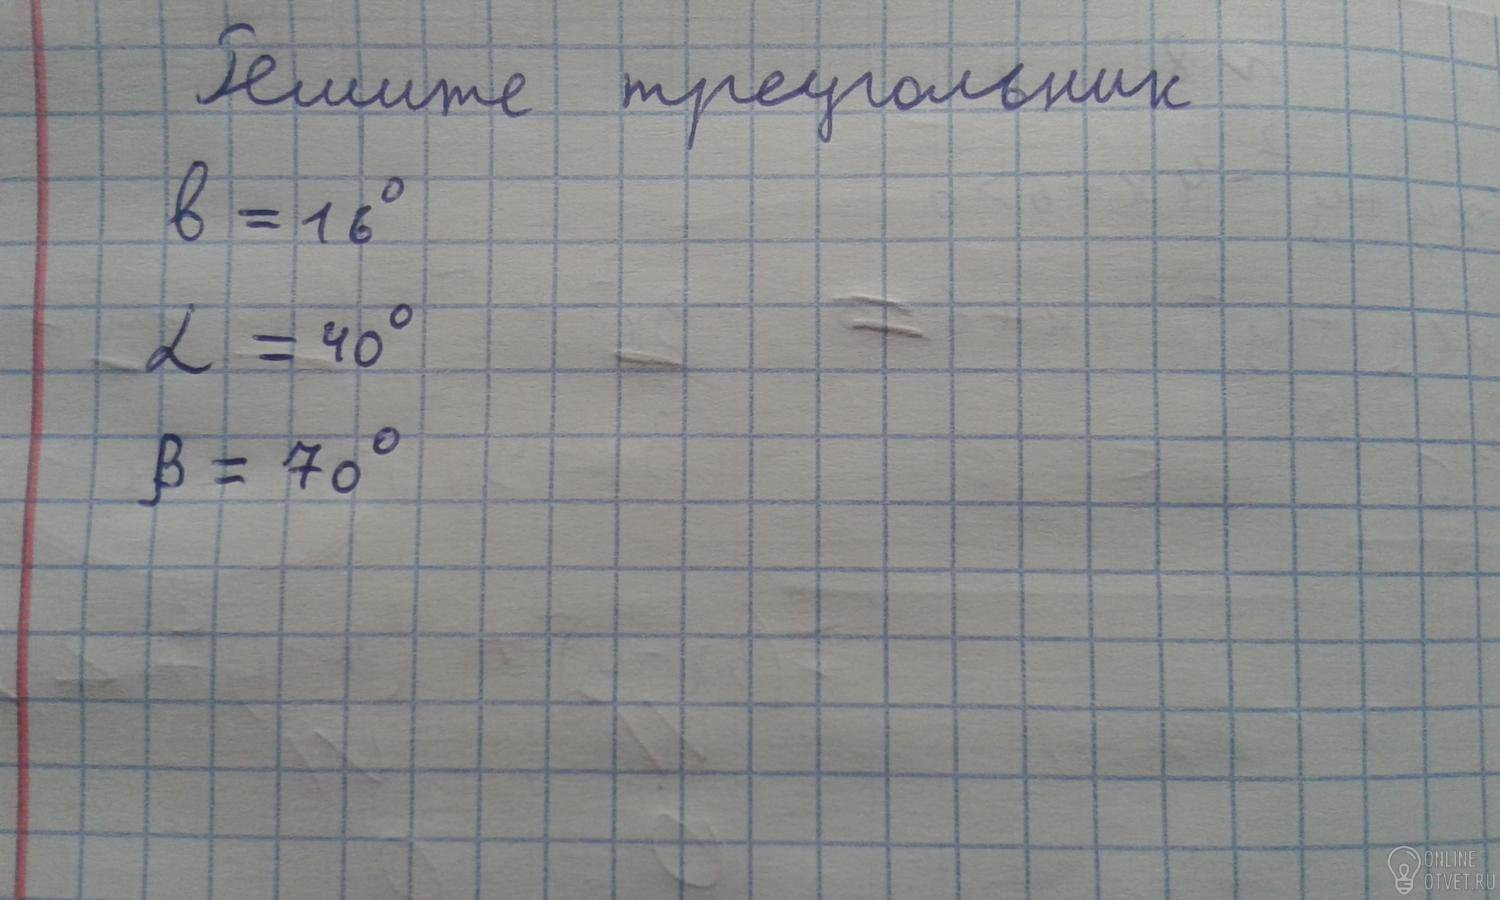 Решите треугольник
в = 16°
α = 40°
β = 70°
ONLINE
OTVET.RU